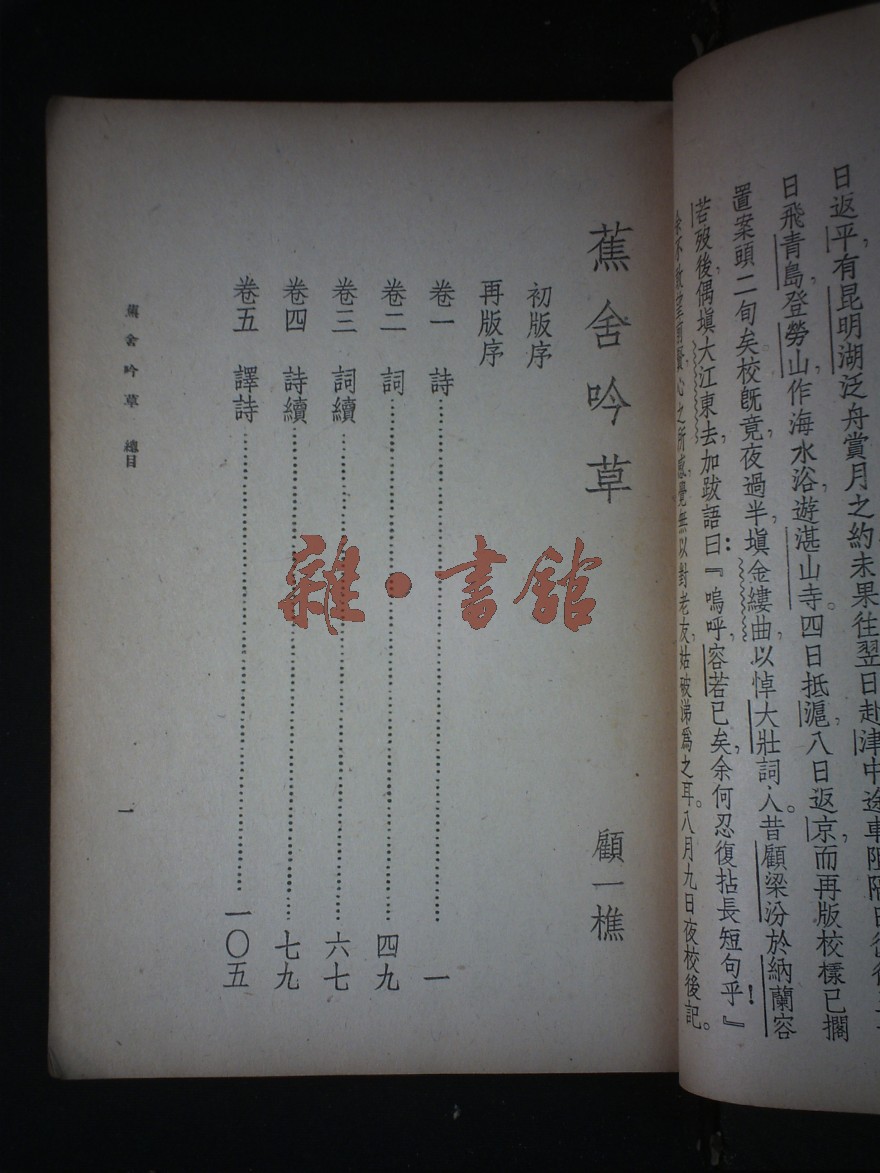 日返平,有昆明湖泛舟賞月之約未果往翌日赴津中途車阻隔
日飛青島,登勞山,作海水浴,遊湛山寺。四日抵滬,八日返京,而再版校樣已擱
置案頭二旬矣。校既竟,夜過半,塡金縷曲以悼大壯詞人。昔顧梁汾於納蘭容
若歿後,偶塡大江東去,加跋語曰:『嗚呼,容若已矣,余何忍復拈長短句乎!』
余不敢望前賢,心之所感,覺無以對老友,姑破涕爲之耳。八月九日夜校後記。
蕉舍吟草 顧一樵
初版序
再版序
卷一 詩 一
卷二 詞 四九
卷三 詞續 六七
卷四 詩續 七九
卷五 譯詩 一〇五
蕉舍吟草 總目 一
雜·書館